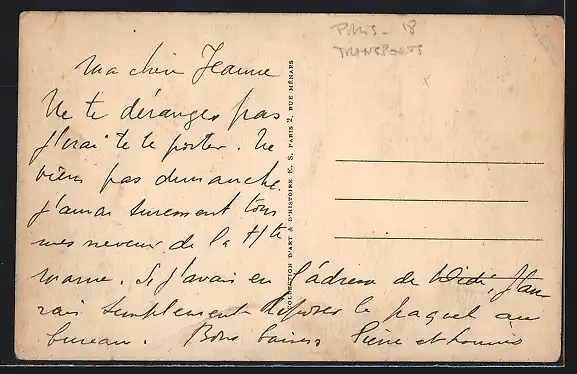 PARIS - 18
TRANSPORTS
Ma chère Jeanne
Ne te déranges pas
J'irai te le porter. Ne
viens pas dimanche.
J'aurai surement tous
mes neveux de la Hte
Marne. Si j'avais eu l'adresse de Dédé, J'au-
rais simplement déposer le paquet au
bureau. Bons baisers Pierre et
COLLECTION D'ART & D'HISTOIRE E. S. PARIS 2, RUE MÉNARS